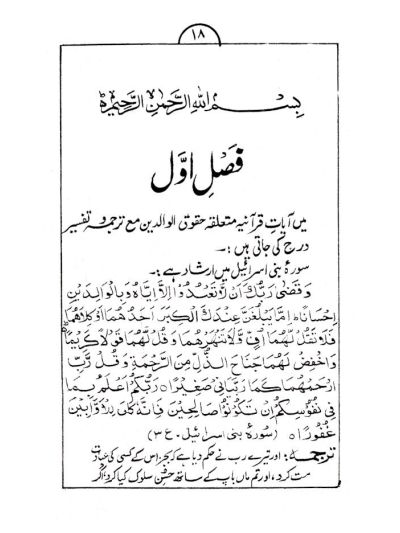 ۱۸
بِسْمِ اللهِ الرَّحْمٰنِ الرَّحِيْمِ
فصلِ اوّل
میں آیاتِ قرآنیہ متعلقہ حقوق الوالدین مع ترجمہ و تفسیر
درج کی جاتی ہیں :۔
سورۂ بنی اسرائیل میں ارشاد ہے :۔
وَقَضٰى رَبُّكَ اَنْ لَّا تَعْبُدُوْا اِلَّا اِيَّاهُ وَبِالْوَالِدَيْنِ
اِحْسَانًا ؕ اِمَّا يَبْلُغَنَّ عِنْدَكَ الْكِبَرَ اَحَدُهُمَا اَوْ كِلَاهُمَا
فَلَا تَقُلْ لَّهُمَا اُفٍّ وَّلَا تَنْهَرْهُمَا وَقُلْ لَّهُمَا قَوْلًا كَرِيْمًا ۝
وَاخْفِضْ لَهُمَا جَنَاحَ الذُّلِّ مِنَ الرَّحْمَةِ وَقُلْ رَّبِّ
ارْحَمْهُمَا كَمَا رَبَّيَانِيْ صَغِيْرًا ۝ رَبُّكُمْ اَعْلَمُ بِمَا
فِيْ نُفُوْسِكُمْ اِنْ تَكُوْنُوْا صَالِحِيْنَ فَاِنَّهٗ كَانَ لِلْاَوَّابِيْنَ
غَفُوْرًا ۝ (سورۂ بنی اسرائیل۔ ع ۳)
ترجمہ: اور تیرے رب نے حکم دیا ہے کہ بجز اس کے کسی کی عبادت
مت کرو، اور تم ماں باپ کے ساتھ حسنِ سلوک کیا کرو، اگر